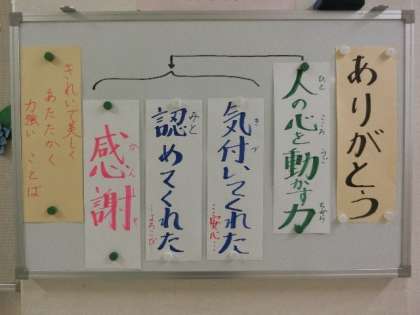 ありがとう
人の心を動かす力
ひと
こころ
うご
ちから
気付いてくれた
き
づ
…安心…
認めてくれた
みと
…よろこび
感謝
かん
しゃ
きれいで美しく
あたたかく
力強い ことば